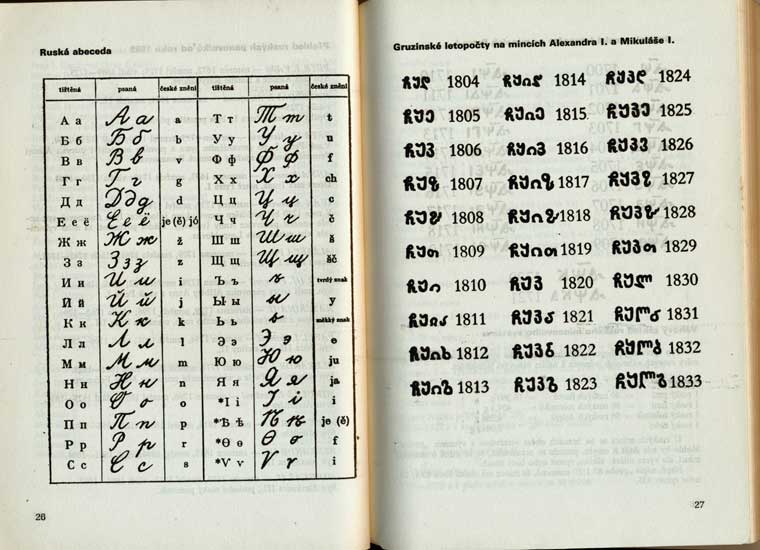 Ruská abeceda
tištěná psaná české znění tištěná psaná české znění
А а А а a Т т Т т t
Б б Б б b У у У у u
В в В в v Ф ф Ф ф f
Г г Г г g Х х Х х ch
Д д Д д д d Ц ц Ц ц c
Е е ё Е е ё je (ě) jó Ч ч Ч ч č
Ж ж Ж ж ž Ш ш Ш ш š
З з З з з z Щ щ Щ щ šč
И и И и i Ъ ъ ъ tvrdý znak
Й й Й й j Ы ы ы y
К к К к k Ь ь ь měkký znak
Л л Л л l Э э Э э e
М м М м m Ю ю Ю ю ju
Н н Н н n Я я Я я ja
О о О о o *І і І і i
П п П п p *Ѣ ѣ Ѣ ѣ je (ě)
Р р Р р r *Ѳ ѳ Ѳ ѳ f
С с С с s *Ѵ ѵ Ѵ ѵ i
26
Gruzínské letopočty na mincích Alexandra I. a Mikuláše I.
ჩყდ 1804 ჩყიდ 1814 ჩყკდ 1824
ჩყე 1805 ჩყიე 1815 ჩყკე 1825
ჩყვ 1806 ჩყივ 1816 ჩყკვ 1826
ჩყზ 1807 ჩყიზ 1817 ჩყკზ 1827
ჩყჱ 1808 ჩყიჱ 1818 ჩყკჱ 1828
ჩყთ 1809 ჩყით 1819 ჩყკთ 1829
ჩყი 1810 ჩყკ 1820 ჩყლ 1830
ჩყია 1811 ჩყკა 1821 ჩყლა 1831
ჩყიბ 1812 ჩყკბ 1822 ჩყლბ 1832
ჩყიგ 1813 ჩყკგ 1823 ჩყლგ 1833
27